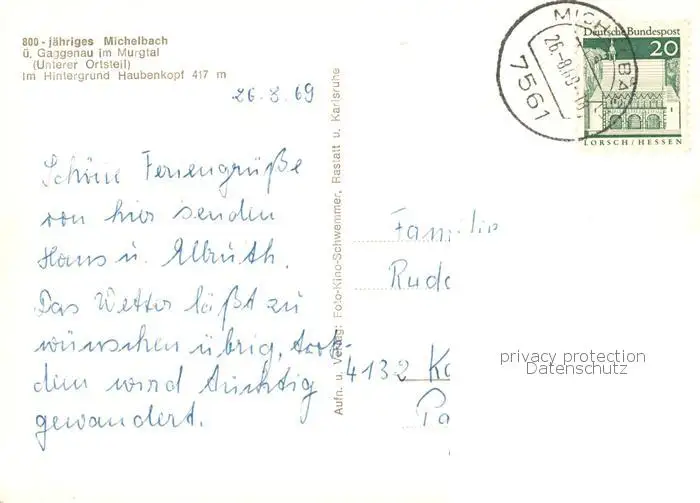 800-jähriges Michelbach
ü. Gaggenau im Murgtal
(Unterer Ortsteil)
Im Hintergrund Haubenkopf 417 m
26.8.69
Schöne Feriengrüße
von hier senden
Hans u.
Das Wetter läßt zu
wünschen übrig, trotz-
dem wird tüchtig
gewandert.
Aufn. u. Verlag: Foto-Kino-Schwemmer, Rastatt u. Karlsruhe
Familie
Rud
4132 Ka
Pa
7561
26.-8.69
Deutsche Bundespost
20
LORSCH/HESSEN
privacy protection
Datenschutz